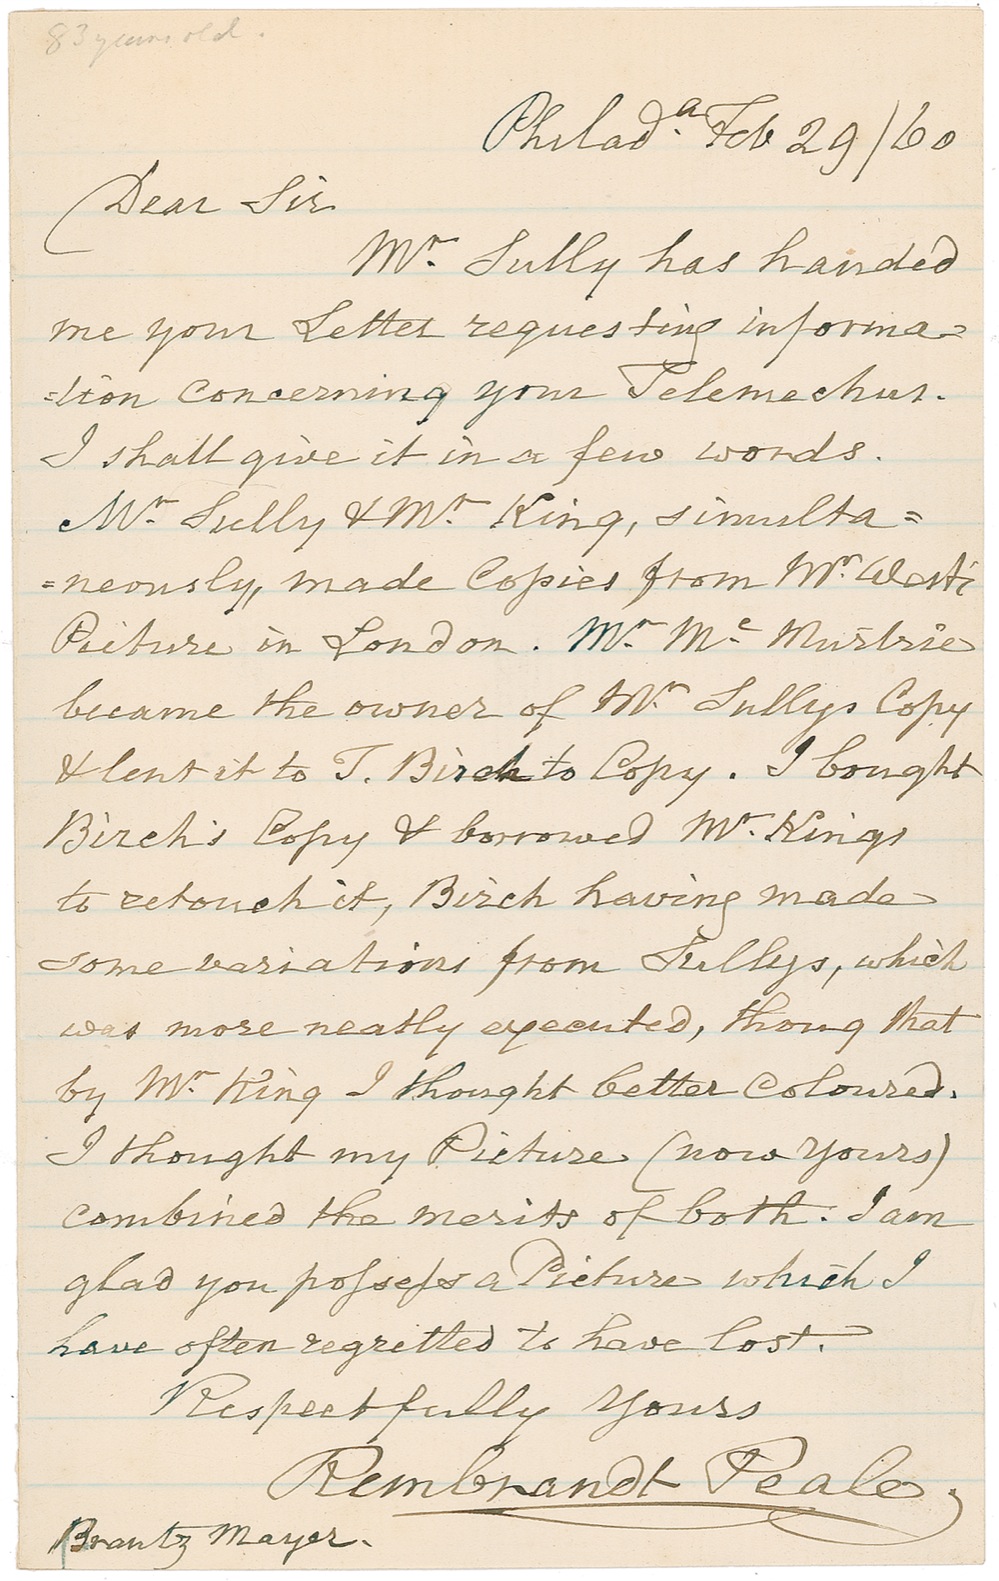 83 years old.
Philad.a Feb 29/60
Dear Sir
Mr. Sully has handed
me your Letter requesting informa=
=tion concerning your Telemechus.
I shall give it in a few words.
Mr. Sully & Mr. King, simulta=
=neously, made Copies from Mr. Wests
Picture in London. Mr. Mc Murtrie
became the owner of Mr. Sullys Copy
& lent it to T. Birch to Copy. I bought
Birch's Copy & borrowed Mr. Kings
to retouch it, Birch having made
some variations from Sullys, which
was more neatly executed, thoug that
by Mr. King I thought better coloured.
I thought my Picture (now yours)
combined the merits of both. I am
glad you possess a Picture which I
have often regritted to have lost.
Respectfully Yours
Rembrandt Peale.
Brantz Mayer.